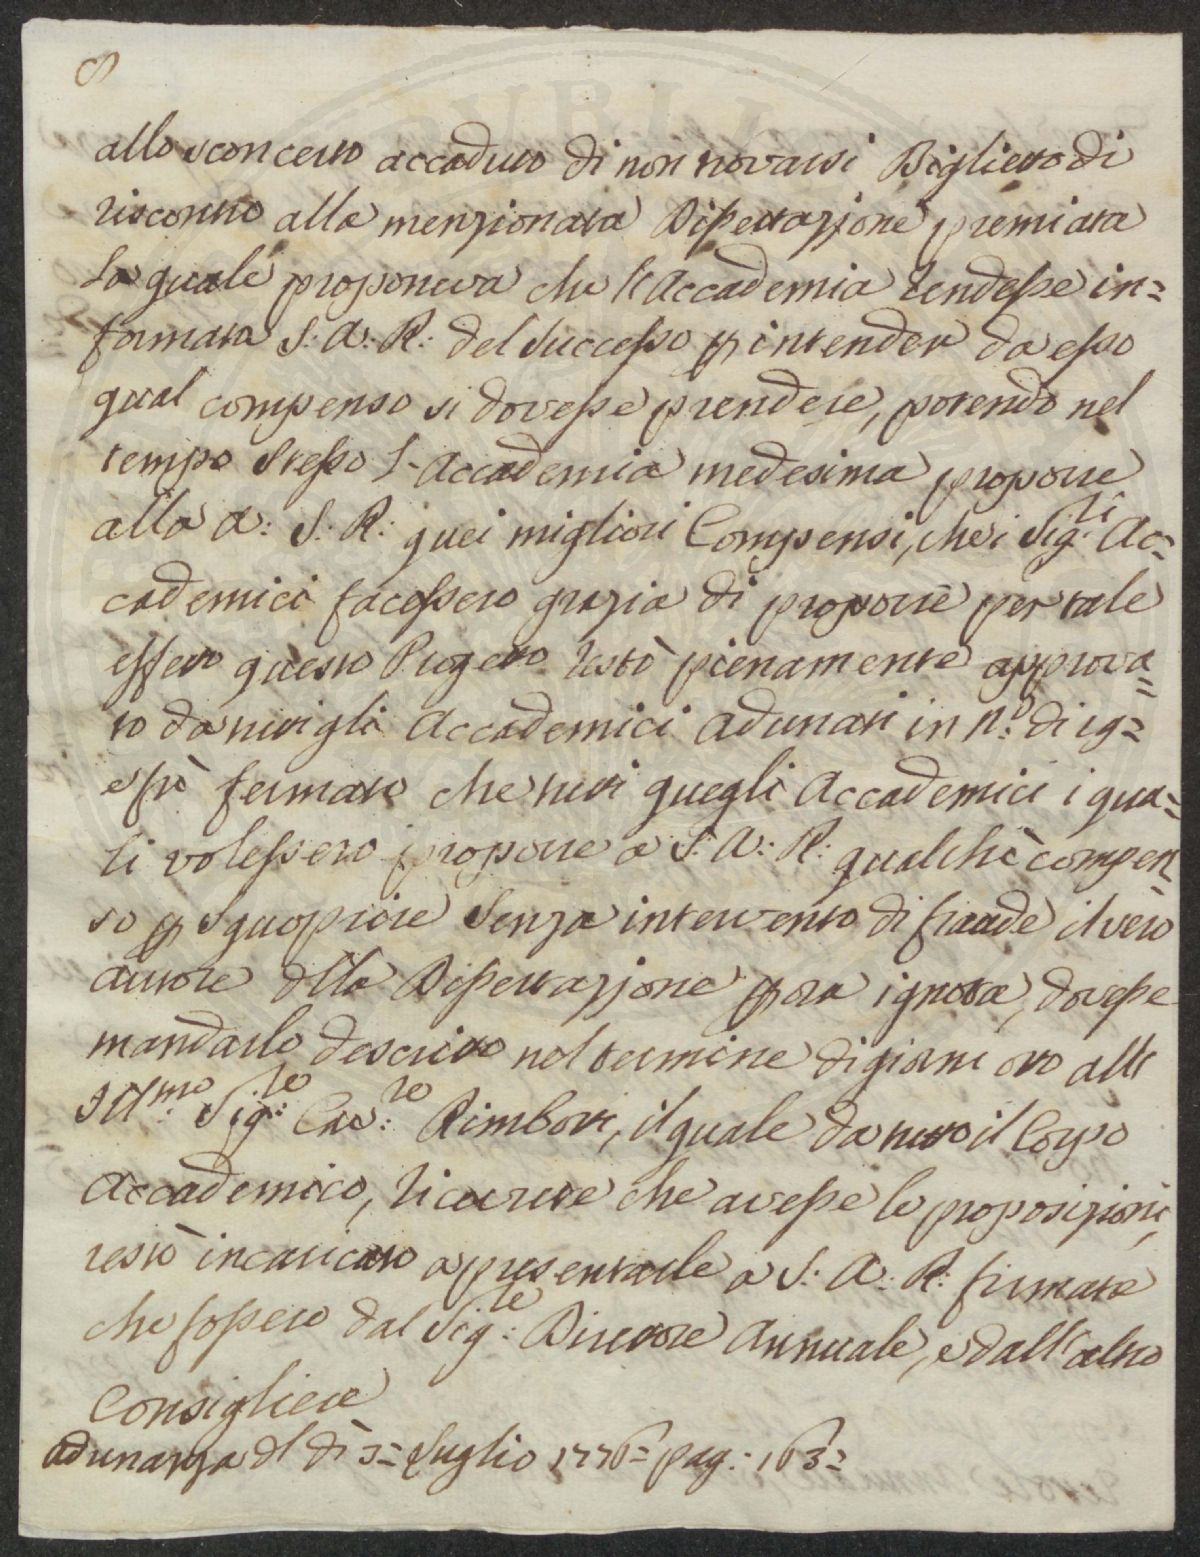 8
allo sconcerto accaduto di non trovarsi Biglietto di
riscontro alla menzionata Dissertazione premiata
la quale proponeva che l'Accademia rendesse in=
formata S: A: R: del successo p intender da esso
qual compenso si dovesse prendere, potendo nel
tempo stesso l'Accademia medesima proporre
alla A: S: R: quei migliori Compensi, che i Sig.ri Ac=
cademici facessero grazia di proporre per tale
effetto questo Progetto restò pienamente approva=
to da tutti gli Accademici adunati in n.o di 19=
e fù fermato che tutti quegli Accademici i qua=
li volessero proporre a S: A: R: qualche compen
so p iscuoprire senza intervento di fraude il vero
autore dlla Dissertazione p ora ignota, dovesse
mandarlo descritto nel termine di giorni otto all
Ill.mo Sig.re Cav.re Rimbotti, il quale da tutto il Corpo
Accademico, ricevute che avesse le proposizioni,
restò incaricato a presentarle a S: A: R: firmate
che fossero dal Sig.re Direttore Annuale, e dall'altro
Consigliere
adunanza dl dì 3= Luglio 1776= pag: 163=